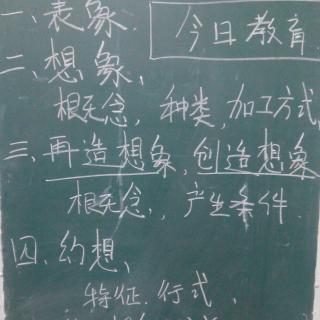 一、表象. 今日教育
二、想象、
概念, 种类, 加工方式
三、再造想象, 创造想象
概念、, 产生条件.
四、幻想、
特征. 行式、